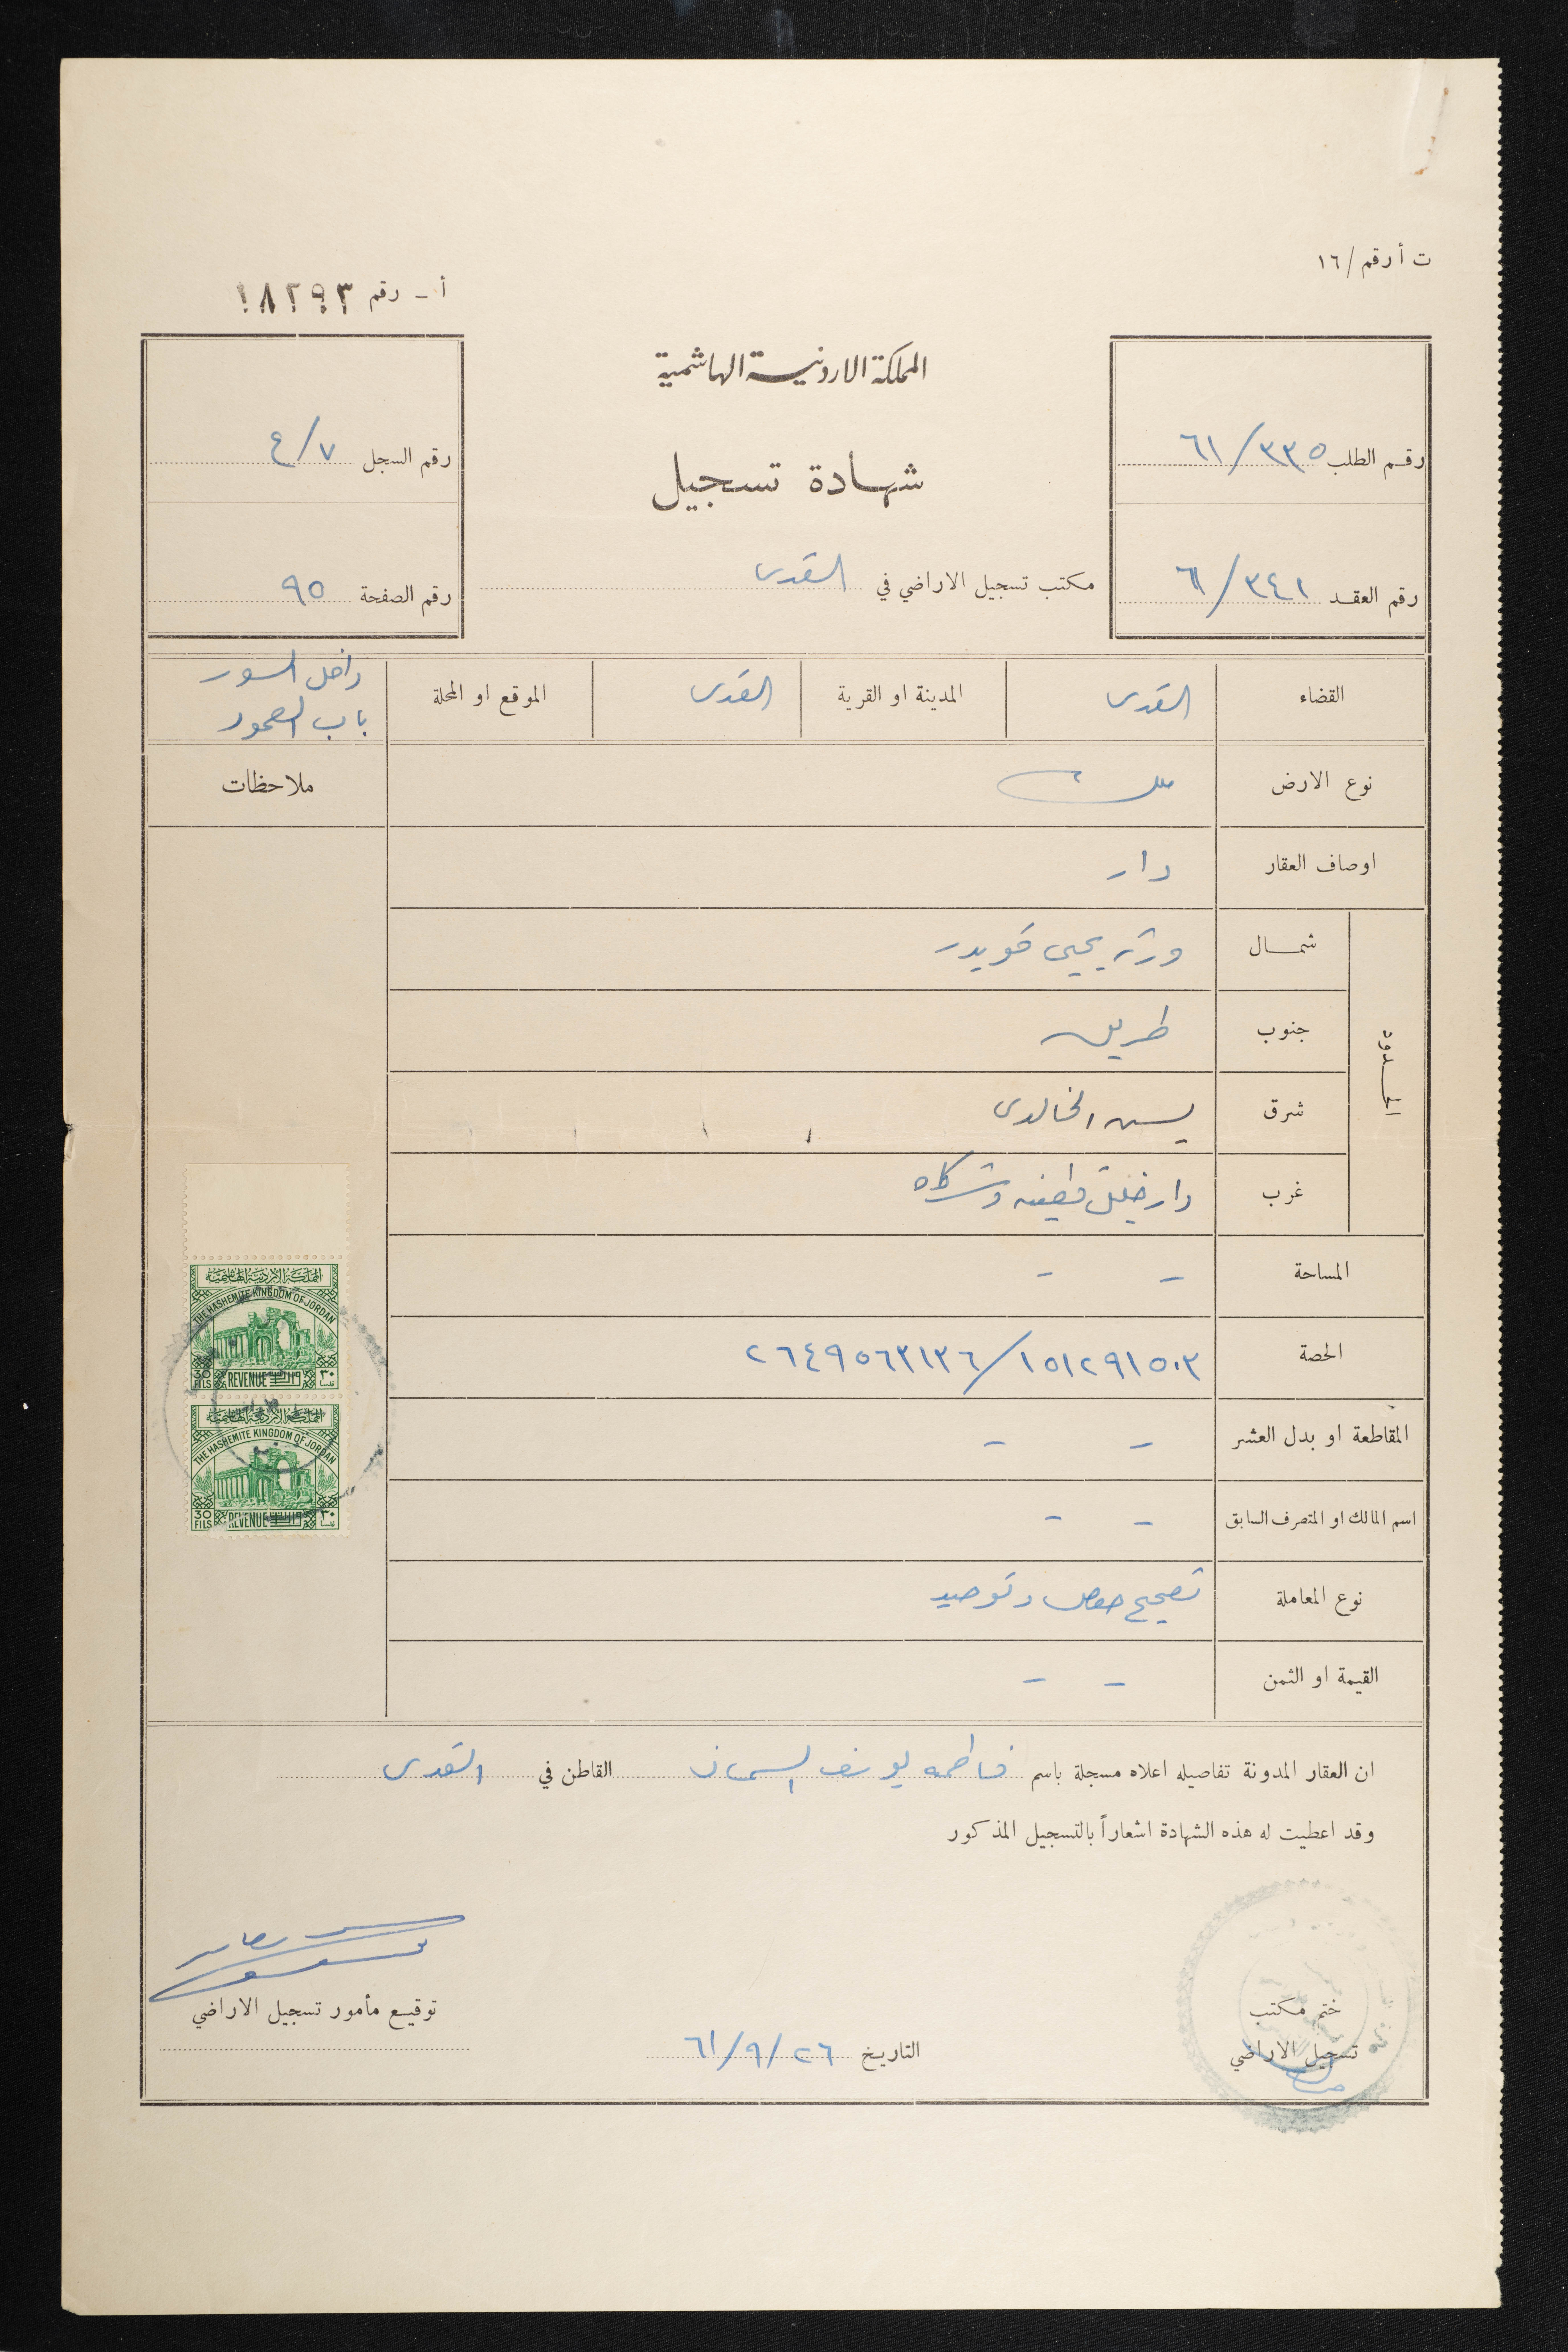 ت أ رقم / ١٦
أ - رقم ١٨٢٩٣
المملكة الاردنية الهاشمية
شهادة تسجيل
رقم الطلب ٦١/٣٣٥
رقم العقد ٦١/٣٤١
رقم السجل ٤/٧
رقم الصفحة ٩٥
مكتب تسجيل الاراضي في القدس
القضاء القدس المدينة او القرية القدس الموقع او المحلة داخل السور
باب العمود
نوع الارض ملك
ملاحظات
اوصاف العقار دار
الحدود
شمال ورثة يحيى قويدر
جنوب طريق
شرق يسن الخالدي
غرب دار خليل قطينه وشركاه
المساحة - -
الحصة ١٥١٢٩١٥٠٣/٢٦٤٩٥٦٣١٣٦
المقاطعة او بدل العشر - -
اسم المالك او المتصرف السابق - -
نوع المعاملة تصحيح حصص وتوحيد
القيمة او الثمن - -
المملكة الاردنية الهاشمية
THE HASHEMITE KINGDOM OF JORDAN
30 FILS REVENUE ٣٠ فلسا
المملكة الاردنية الهاشمية
THE HASHEMITE KINGDOM OF JORDAN
30 FILS REVENUE ٣٠ فلسا
ان العقار المدونة تفاصيله اعلاه مسجلة باسم فاطمه يوسف السمان القاطن في القدس
وقد اعطيت له هذه الشهادة اشعاراً بالتسجيل المذكور
ختم مكتب
تسجيل الاراضي
التاريخ ٢٦/٩/٦١
توقيع مأمور تسجيل الاراضي